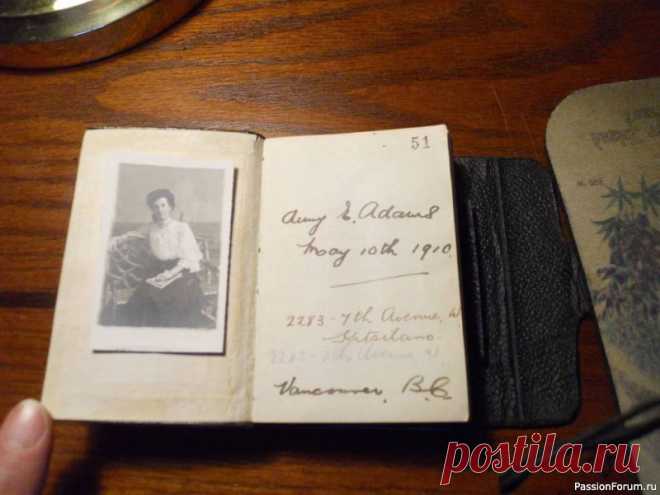 51
Amy E. Adams
May 10th 1910.
2283-7th Avenue, W
2282-7th Avenue W.
Vancouver, B.C
postila.ru
PassionForum.ru